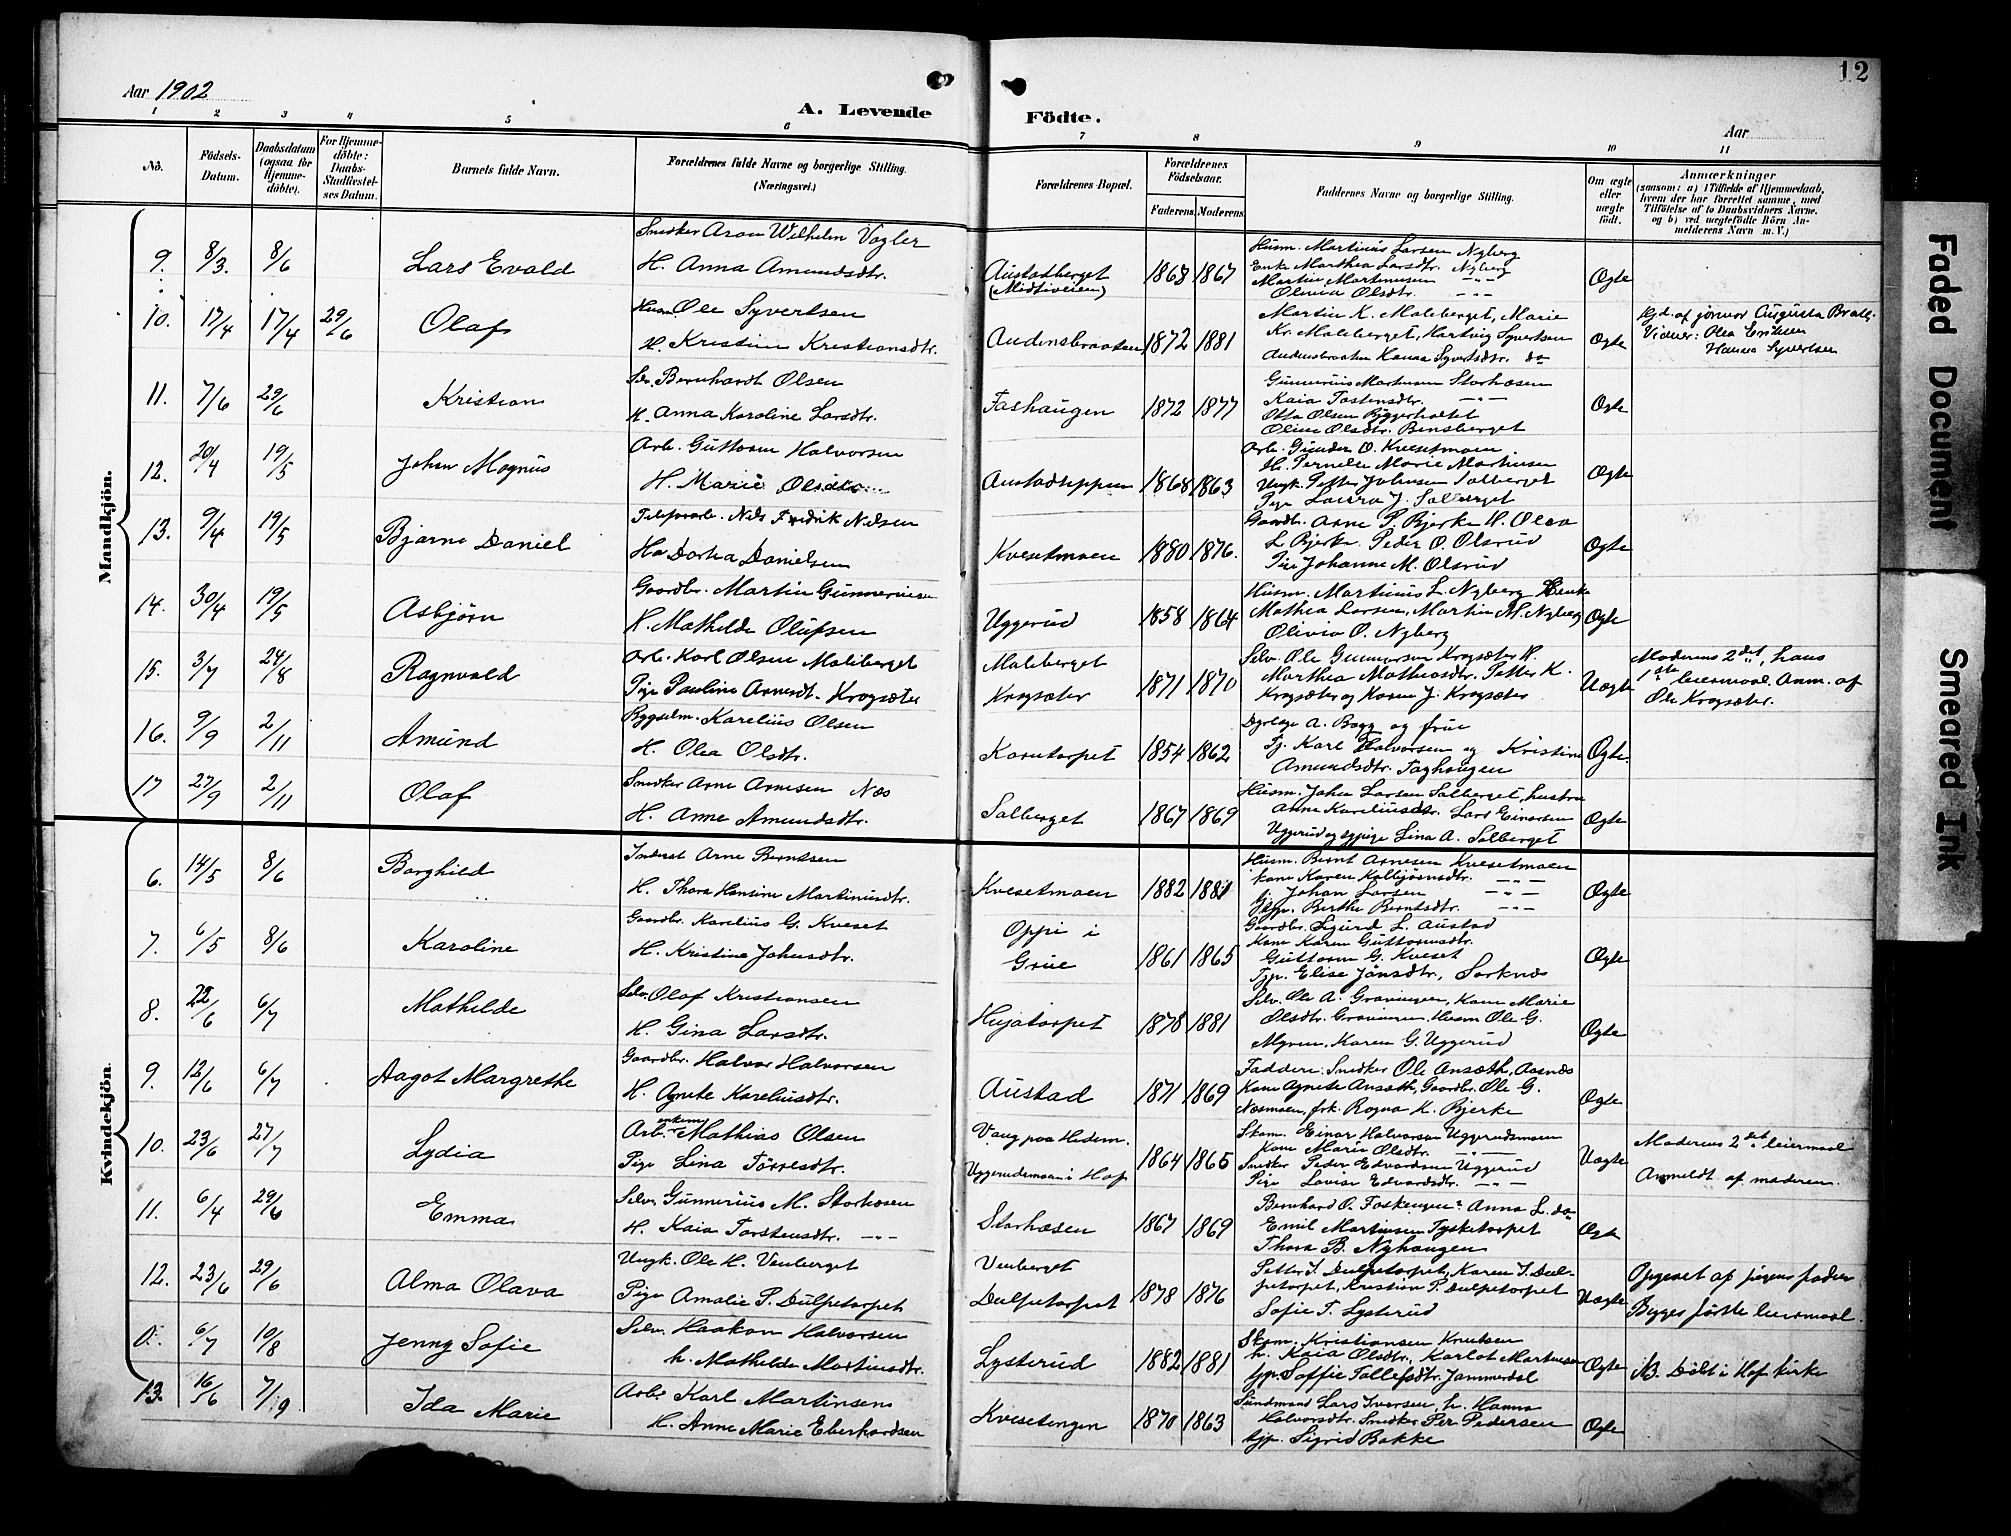 12
Aar 1902
A. Levende Födte.
Aar
1 2 3 4 5 6 7 8 9 10 11
No.
Födsels-Datum.
Daabsdatum (ogsaa for Hjemmedöbte).
For Hjemmedöbte: Daabs-Stadfæstelses Datum.
Barnets fulde Navn.
Forældrenes fulde Navne og borgerlige Stilling. (Næringsvei.)
Forældrenes Bopæl.
Forældrenes Födselsaar.
Faderens Moderens
Faddernes Navne og borgerlige Stilling.
Om ægte eller uægte födt.
Anmærkninger
(saasom: a) i Tilfælde af Hjemmedaab, hvem der har forrettet samme, med Tilföielse af to Daabsvidners Navne. og b) ved uægtefödte Börn Anmelderens Navn m. V.)
Mandkjön.
9. 8/3. 8/6 Lars Evald
Snedker Aron Wilhelm Vogler
H. Anna Amundsdtr.
Austadberget (Midtiveien) 1868 1867
Husm. Martinus Larsen Nyberg
Enke Marthea Larsdtr. Nyberg
Martin Martinusen -"-
Olivia Olsdtr. -"-
Ægte
10. 17/4 17/4 29/6 Olaf
Husm. Ole Syvertsen
H. Kristine Kristiansdtr.
Audensbraaten 1872 1881
Martin K. Maleberget, Marie
Kr. Maleberget, Hartvig Syvertsen
Audensbraaten Hanna Syvertsdtr. do
Ægte
Hjd. af jormor Augusta Brath.
Vidner: Olea Eriksen
Hanna Syvertsen
11. 7/6 29/6 Kristian
Selv. Bernhardt Olsen
H. Anna Karoline Larsdtr.
Fashaugen 1872 1877
Gunnerius Martinsen Storhaasen
Kaia Tostensdtr. -"-
Otto Olsen Byggerholtet
Oline Olsdtr. Bensberget
Ægte
12. 20/4 19/5 Johan Magnus
Arb. Guttorm Halvorsen
H. Marie Olsdtr.
Austadseppen 1868 1863
Arb. Gunder O. Kvesetmoen
H. Pernelle Marie Martinsen
Ungk. Petter Johnsen Salberget
Pige Laura J. Salberget
Ægte
13. 9/4 19/5 Bjarne Daniel
Telefonarb. Nils Fredrik Nilsen
Ha Dorthea Danielsen
Kvesetmoen 1880 1876.
Gaardbr. Arne P. Bjerke H. Olea
L. Bjerke. Peder O. Olsrud
Pige Johanne M. Olsrud
Ægte
14. 30/4 19/5 Asbjørn
Gaardbr. Martin Gunneriusen
H. Mathilde Olufsen
Uggerud 1858 1864
Husm. Martinus L. Nyberg Enke
Mathea Larsen, Martin M. Nyberg
Olivia O. Nyberg
Ægte
15. 3/7 24/8 Ragnvald
Arb. Karl Olsen Maleberget
Pige Pauline Arnesdt. Krogsæter
Maleberget
Krogsæter 1871 1870
Selv. Ole Gunnarsen Krogsæter H.
Marthea Matheasdtr. Petter K.
Krogsæter og Karen J. Krogsæter
Uægte
Moderens 2det, hans
1ste leiermaal. Anm. af
Ole Krogsæter.
16. 9/9 2/11 Amund
Bygselm. Karelius Olsen
H. Olea Olsdtr.
Korntorpet 1854 1862
Dyrlæge A. Bagg og frue
Tj. Karl Halvorsen og Kristine
Amundsdtr. Faghaugen
Ægte.
17 27/9 2/11 Olaf
Snedker Arne Arnesen Næs
H. Anne Amundsdtr.
Salberget 1867 1869
Husm. Johan Larsen Salberget, hustru
Anne Kareliusdtr. Lars Einarsen
Uggerud og tj.pige Lina A. Salberget
Ægte
Kvindekjön.
6. 14/5 8/6 Borghild
Inderst Arne Berntsen
H. Thora Hansine Martinusdtr.
Kvesetmoen 1882 1881
Husm. Bernt Arnesen Kvesetmoen
kone Karen Kolbjørnsdtr. -"-
Johan Larsen -"-
Berthe Berntsdtr. -"-
Ægte
7. 6/5 8/6 Karoline
Gaardbr. Karelius G. Kveset
H. Kristine Johnsdtr.
Oppi i
Grue 1861 1865
Gaardbr. Sigurd L. Austad
Kone Karen Guttormsdtr.
Guttorm G. Kveset
Tjp. Elise Jönsdtr, Sorknæs
Ægte
8. 22/6 6/7 Mathilde
Selv. Olaf Kristiansen
H. Gina Larsdtr.
Hujatorpet 1878 1881
Selv. Ole A. Graningen, Kone Marie
Olsdtr. Graningen, Husm Ole G.
Myren, Karen G. Uggerud
Ægte
9. 12/6 6/7 Aagot Margrethe
Gaardbr. Halvor Halvorsen
H. Agnete Kareliusdtr.
Austad 1871 1869
Faddere: Snedker Ole Ansæth, Aasnes
Kone Agnete Ansæth, Gaardbr. Ole G.
Næsmoen, frk. Ragna K. Bjerke
Ægte
10. 23/6 27/7 Lydia
Arb. enkem Mathias Olsen
Pige Lina Törresdtr.
Vang paa Hedem.
Uggerudsmoen i Hof 1864 1865
Skom. Einar Halvorsen Uggerudsmoen
Kone Marie Olsdtr. -"-
Snedker Peder Edvardsen Uggerud
Pige Lovise Edvardsdtr. -"-
Uægte
Moderens 2det leiermaal
Anmeldt af moderen.
11. 6/4 29/6 Emma
Selv. Gunnerius M. Storhaasen
H. Kaia Torstensdtr. -"-
Storhaasen 1867 1869
Bernhard O. Foshaugen Anna L. do
Emil Martinsen Tysketorpet
Thora B. Nyhaugen
Ægte
12. 23/6 29/6 Alma Olava
Ungk. Ole H. Venberget
Pige Amalie P. Dulpetorpet
Venberget
Dulpetorpet 1878 1876
Petter J. Dulpetorpet, Karen J. Dulpetorpet, Kristian P. Dulpetorpet
Sofie T. Lysterud
Uægte
Opgivet af pigens fader
Begges første leiermaal.
0. 6/7 10/8 Jenny Sofie
Selv. Haakon Halvorsen
h. Mathilde Martinsdtr.
Lysterud 1882 1881
Skom. Kristiansen Knutsen
h. Kaia Olsdtr. Karlot Martinsen
tjp. Soffie Tollefsdtr. Jammerdal
Ægte
NB. Döbt i Hof kirke
13. 16/6 7/9 Ida Marie
Arb. Karl Martinsen
H. Anne Marie Eberhardsen
Kvesetengen 1870 1863
Sundmand Lars Iversen, h. Hanna
Halvorsdtr. Snedker Per Pedersen
tjp. Sigrid Bakke
Ægte
Faded Document
Smeared Ink